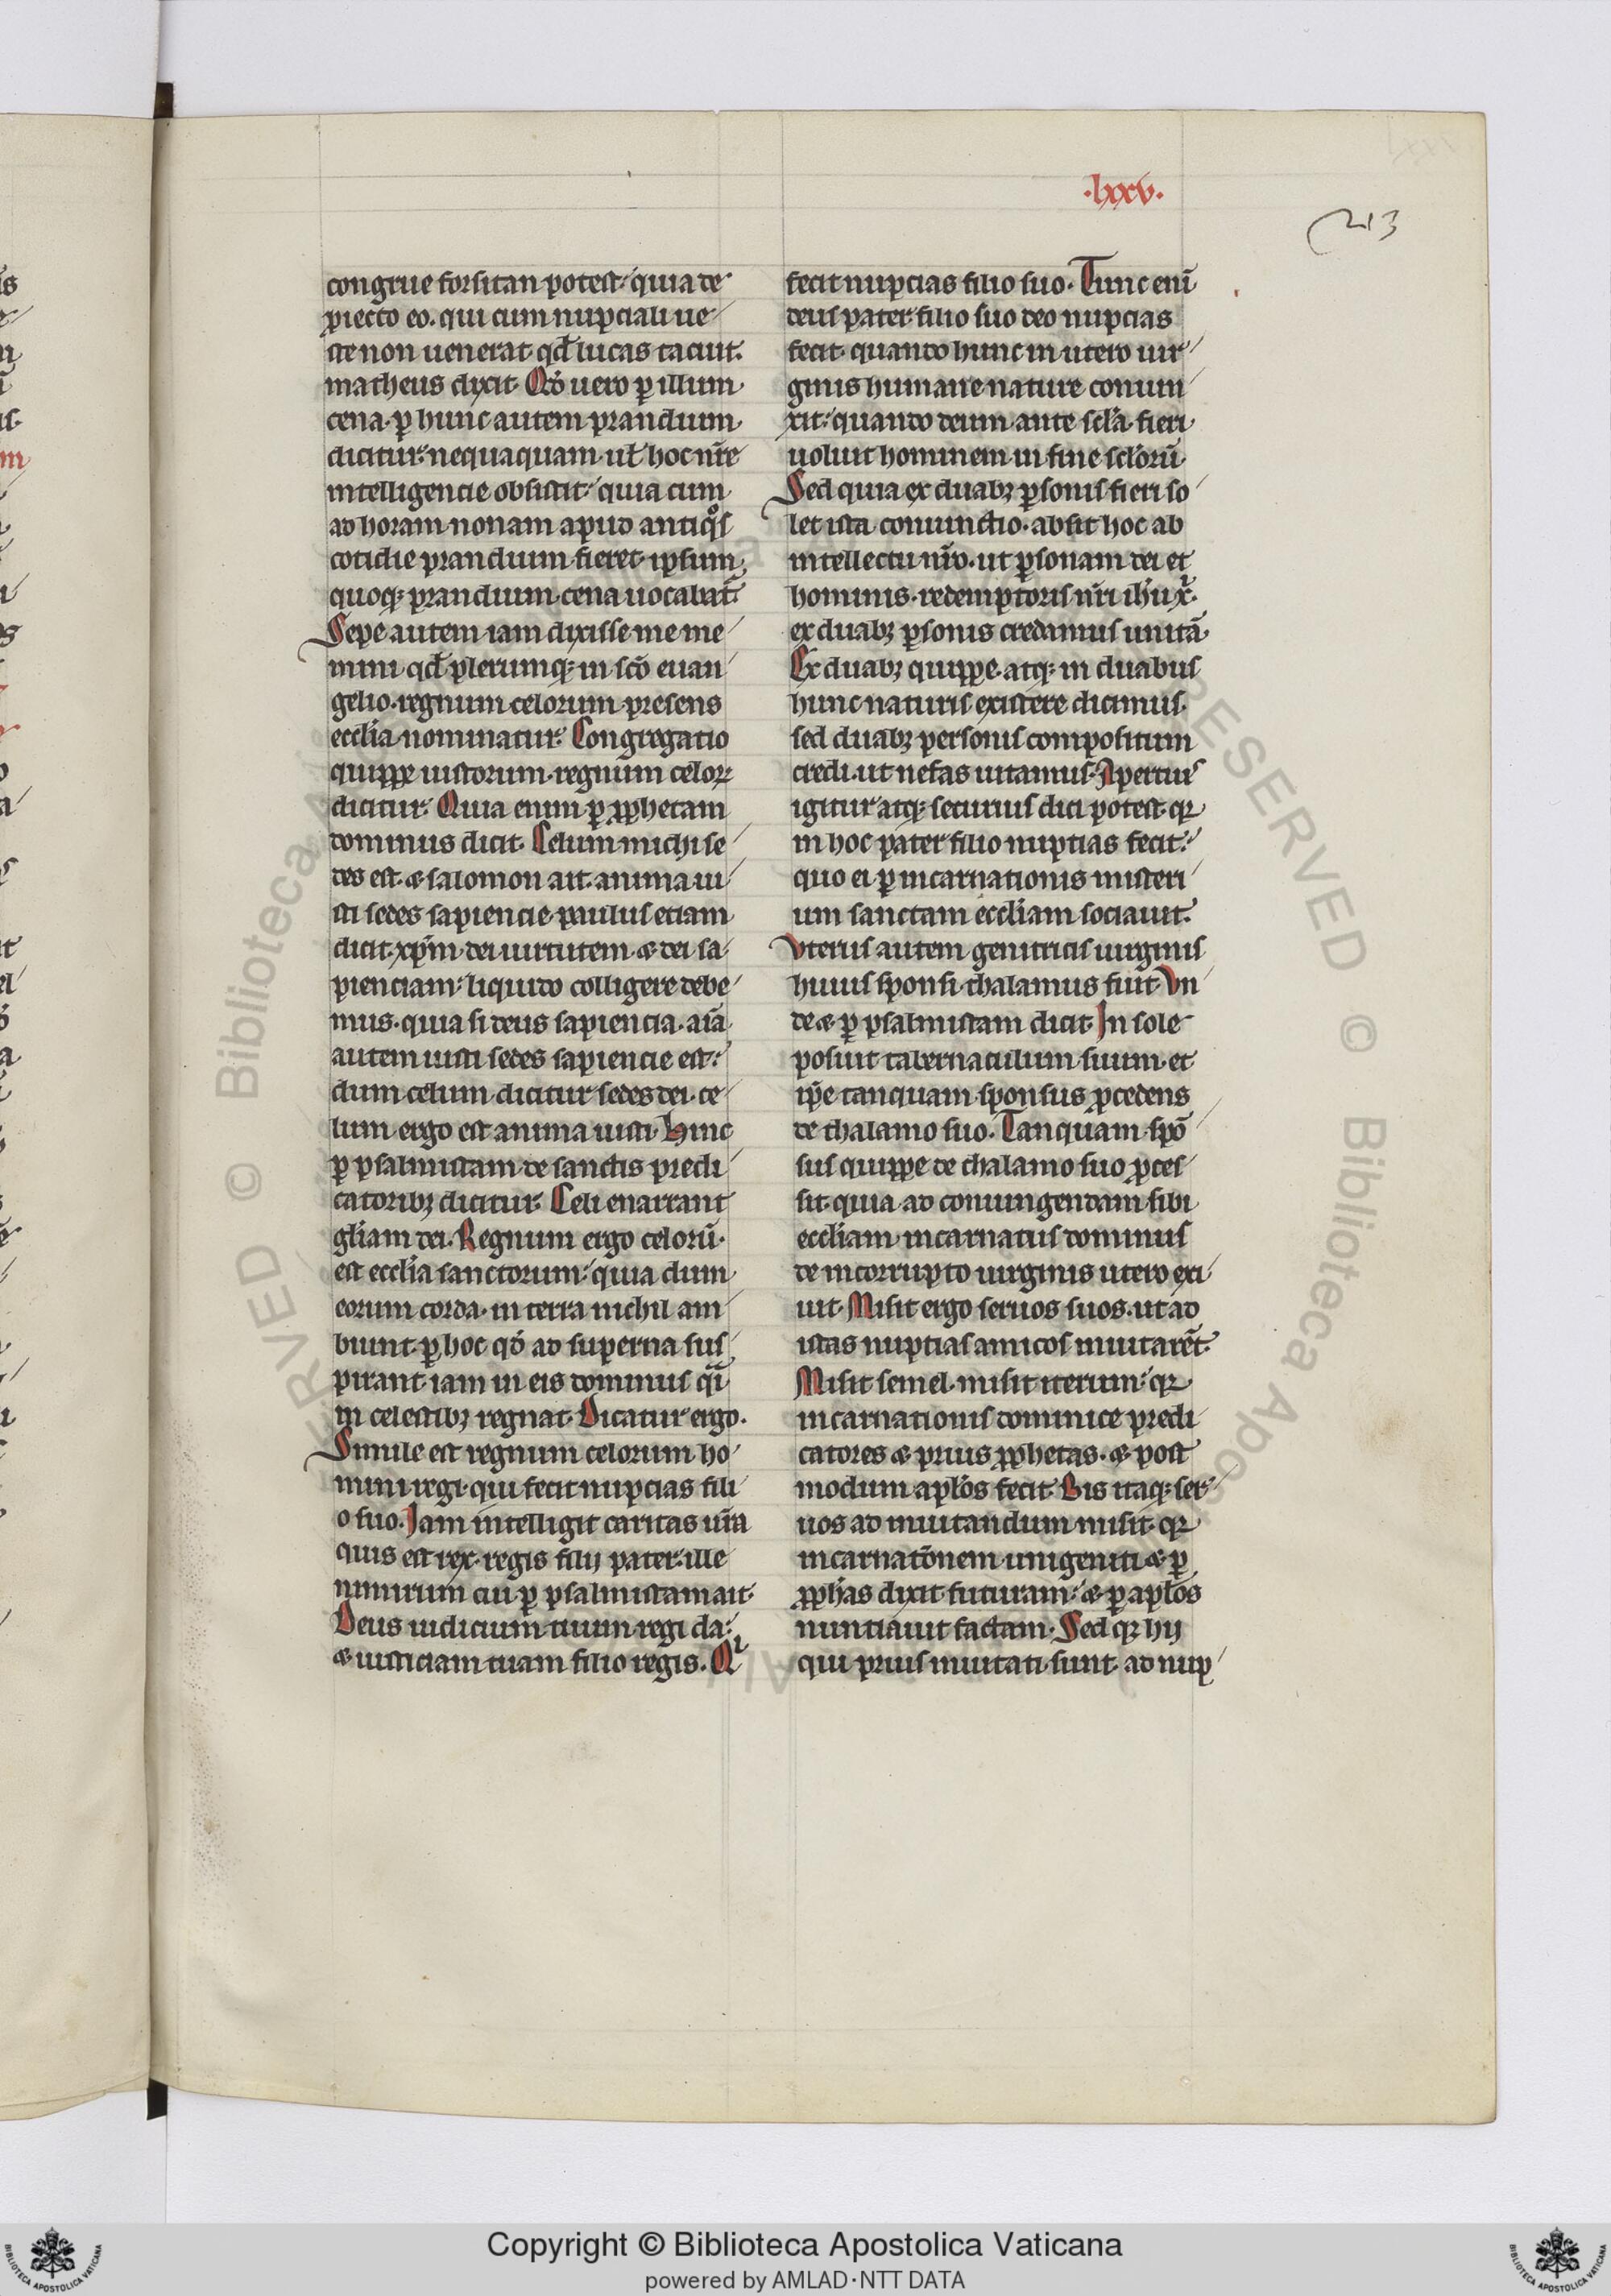 ·lxxv·
213
congrue forsitan potest: quia de
ꝓiecto eo. qui cum nupciali ue
ste non uenerat qd̄ lucas tacuit.
matheus dixit. Qđ uero ꝑ illum
cena. ꝑ hunc autem prandium
dicitur: nequaquam ut̄ hoc nr̄e
intelligencie obsistit: quia cum
ad horam nonam apud antiqͦs
cotidie prandium fieret. ipsum
quoqꝫ prandium cena uocabat̄.
Sepe autem iam dixisse me me
mini qd̄ plerumqꝫ in scō euan
gelio. regnum celorum presens
eccl̄ia nominatur. Congregatio
quippe iustorum. regnum celoꝝ
dicitur. Quia enim ꝑ ꝓphetam
dominus dicit. Celum michi se
des est. & salomon ait. anima iu
sti sedes sapiencie. paulus etiam
dicit. xp̄m. dei uirtutem. & dei sa
pienciam: liquido colligere debe
mus. quia si deus sapiencia. aīa
autem iusti sedes sapiencie est:
dum celum dicitur sedes dei. ce
lum ergo est anima iusti. Hinc
ꝑ psalmistam de sanctis predi
catoribꝫ dicitur. Celi enarrant
gl̄iam dei. Regnum ergo celorū.
est eccl̄ia sanctorum: quia dum
eorum corda. in terra nichil am
biunt. ꝑ hoc qđ ad superna sus
pirant. iam in eis dominus qͣi
in celestibꝫ regnat. Dicatur ergo.
Simile est regnum celorum ho
mini regi. qui fecit nupcias fili
o suo. Jam intelligit caritas ur̄a
quis est rex. regis filij pater. ille
nimirum cui ꝑ psalmistam ait.
Deus iudicium tuum regi da:
& iusticiam tuam filio regis. Qͥ
fecit nupcias filio suo. Tunc enī
deus pater filio suo deo nupcias
fecit. quando hunc in utero uir
ginis humane nature coniun
xit: quando deum ante scl̄a. fieri
uoluit hominem in fine scl̄orū.
Sed quia ex duabꝫ ꝑsonis fieri so
let ista coniunctio. absit hoc ab
intellectu nr̄o. ut ꝑsonam dei et
hominis. redemptoris nr̄i ih̄u x̄.
ex duabꝫ ꝑsonis credamus unitā.
Ex duabꝫ quippe. atqꝫ in duabus
hunc naturis existere dicimus.
sed duabꝫ personis compositum
credi. ut nefas uitamus. Apertius
igitur atqꝫ securius dici potest. qꝛ
in hoc pater filio nuptias fecit:
quo ei ꝑ incarnationis misteri
um sanctam eccl̄iam sociauit.
Uterus autem genitricis uirginis
huius sponsi thalamus fuit. Vn
de & ꝑ psalmistam dicit. In sole
posuit tabernaculum suum. et
ip̄e tanquam sponsus ꝓcedens
de thalamo suo. Tanquam spō
sus quippe de thalamo suo ꝓces
sit. quia ad coniungendam sibi
eccl̄iam incarnatus dominus
de incorrupto uirginis utero exi
uit. Misit ergo seruos suos. ut ad
istas nuptias amicos inuitarēt.
Misit semel. misit iterum: qꝛ
incarnationis dominice predi
catores & prius ꝓphetas. & post
modum apl̄os fecit. Bis itaqꝫ ser
uos ad inuitandum misit. qꝛ
incarnatōnem unigeniti & ꝑ
ꝓph̄as dixit futuram: & ꝑ apl̄os
nuntiauit factam. Sed qꝛ hij
qui prius inuitati sunt. ad nup
Copyright © Biblioteca Apostolica Vaticana
powered by AMLAD·NTT DATA